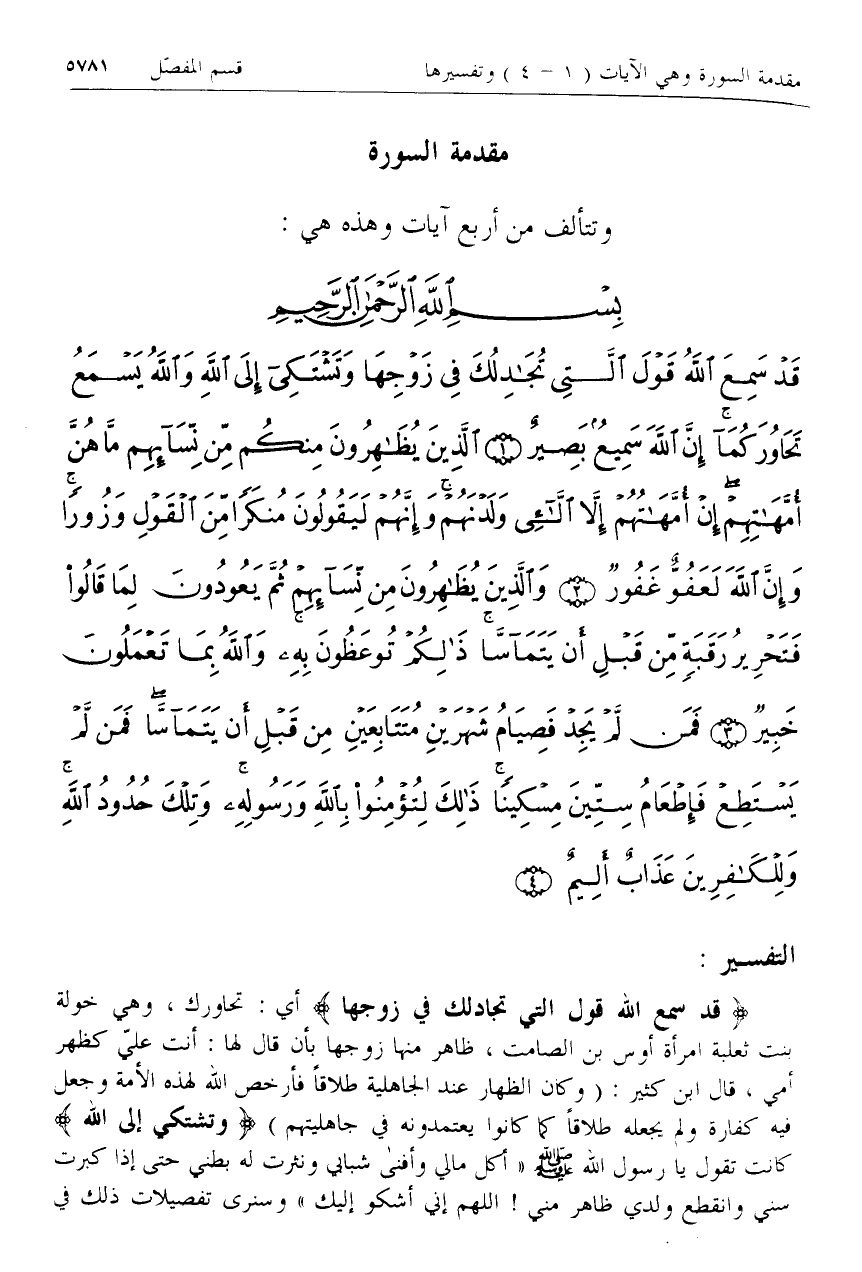 مقدمة السورة وهي الآيات ( ١ – ٤ ) وتفسيرها قسم المفصّل ٥٧٨١
مقدمة السورة
وتتألف من أربع آيات وهذه هي :
بِسْمِ ٱللَّهِ ٱلرَّحْمَٰنِ ٱلرَّحِيمِ
قَدْ سَمِعَ ٱللَّهُ قَوْلَ ٱلَّتِى تُجَٰدِلُكَ فِى زَوْجِهَا وَتَشْتَكِىٓ إِلَى ٱللَّهِ وَٱللَّهُ يَسْمَعُ
تَحَاوُرَكُمَآ ۚ إِنَّ ٱللَّهَ سَمِيعٌۢ بَصِيرٌ ﴿١﴾ ٱلَّذِينَ يُظَٰهِرُونَ مِنكُم مِّن نِّسَآئِهِم مَّا هُنَّ
أُمَّهَٰتِهِمْ ۖ إِنْ أُمَّهَٰتُهُمْ إِلَّا ٱلَّٰٓـِٔى وَلَدْنَهُمْ ۚ وَإِنَّهُمْ لَيَقُولُونَ مُنكَرًا مِّنَ ٱلْقَوْلِ وَزُورًا ۚ
وَإِنَّ ٱللَّهَ لَعَفُوٌّ غَفُورٌ ﴿٢﴾ وَٱلَّذِينَ يُظَٰهِرُونَ مِن نِّسَآئِهِمْ ثُمَّ يَعُودُونَ لِمَا قَالُوا۟
فَتَحْرِيرُ رَقَبَةٍ مِّن قَبْلِ أَن يَتَمَآسَّا ۚ ذَٰلِكُمْ تُوعَظُونَ بِهِۦ ۚ وَٱللَّهُ بِمَا تَعْمَلُونَ
خَبِيرٌ ﴿٣﴾ فَمَن لَّمْ يَجِدْ فَصِيَامُ شَهْرَيْنِ مُتَتَابِعَيْنِ مِن قَبْلِ أَن يَتَمَآسَّا ۖ فَمَن لَّمْ
يَسْتَطِعْ فَإِطْعَامُ سِتِّينَ مِسْكِينًا ۚ ذَٰلِكَ لِتُؤْمِنُوا۟ بِٱللَّهِ وَرَسُولِهِۦ ۚ وَتِلْكَ حُدُودُ ٱللَّهِ ۗ
وَلِلْكَٰفِرِينَ عَذَابٌ أَلِيمٌ ﴿٤﴾
التفسير :
﴿ قد سمع الله قول التي تجادلك في زوجها ﴾ أي : تحاورك ، وهي خولة
بنت ثعلبة امرأة أوس بن الصامت ، ظاهر منها زوجها بأن قال لها : أنت عليّ كظهر
أمي ، قال ابن كثير : ( وكان الظهار عند الجاهلية طلاقاً فأرخص الله لهذه الأمة وجعل
فيه كفارة ولم يجعله طلاقاً كما كانوا يعتمدونه في جاهليتهم ) ﴿ وتشتكي إلى الله ﴾
كانت تقول يا رسول الله ﷺ « أكل مالي وأفنىٰ شبابي ونثرت له بطني حتى إذا كبرت
سني وانقطع ولدي ظاهر مني ! اللهم إني أشكو إليك » وسنرى تفصيلات ذلك في